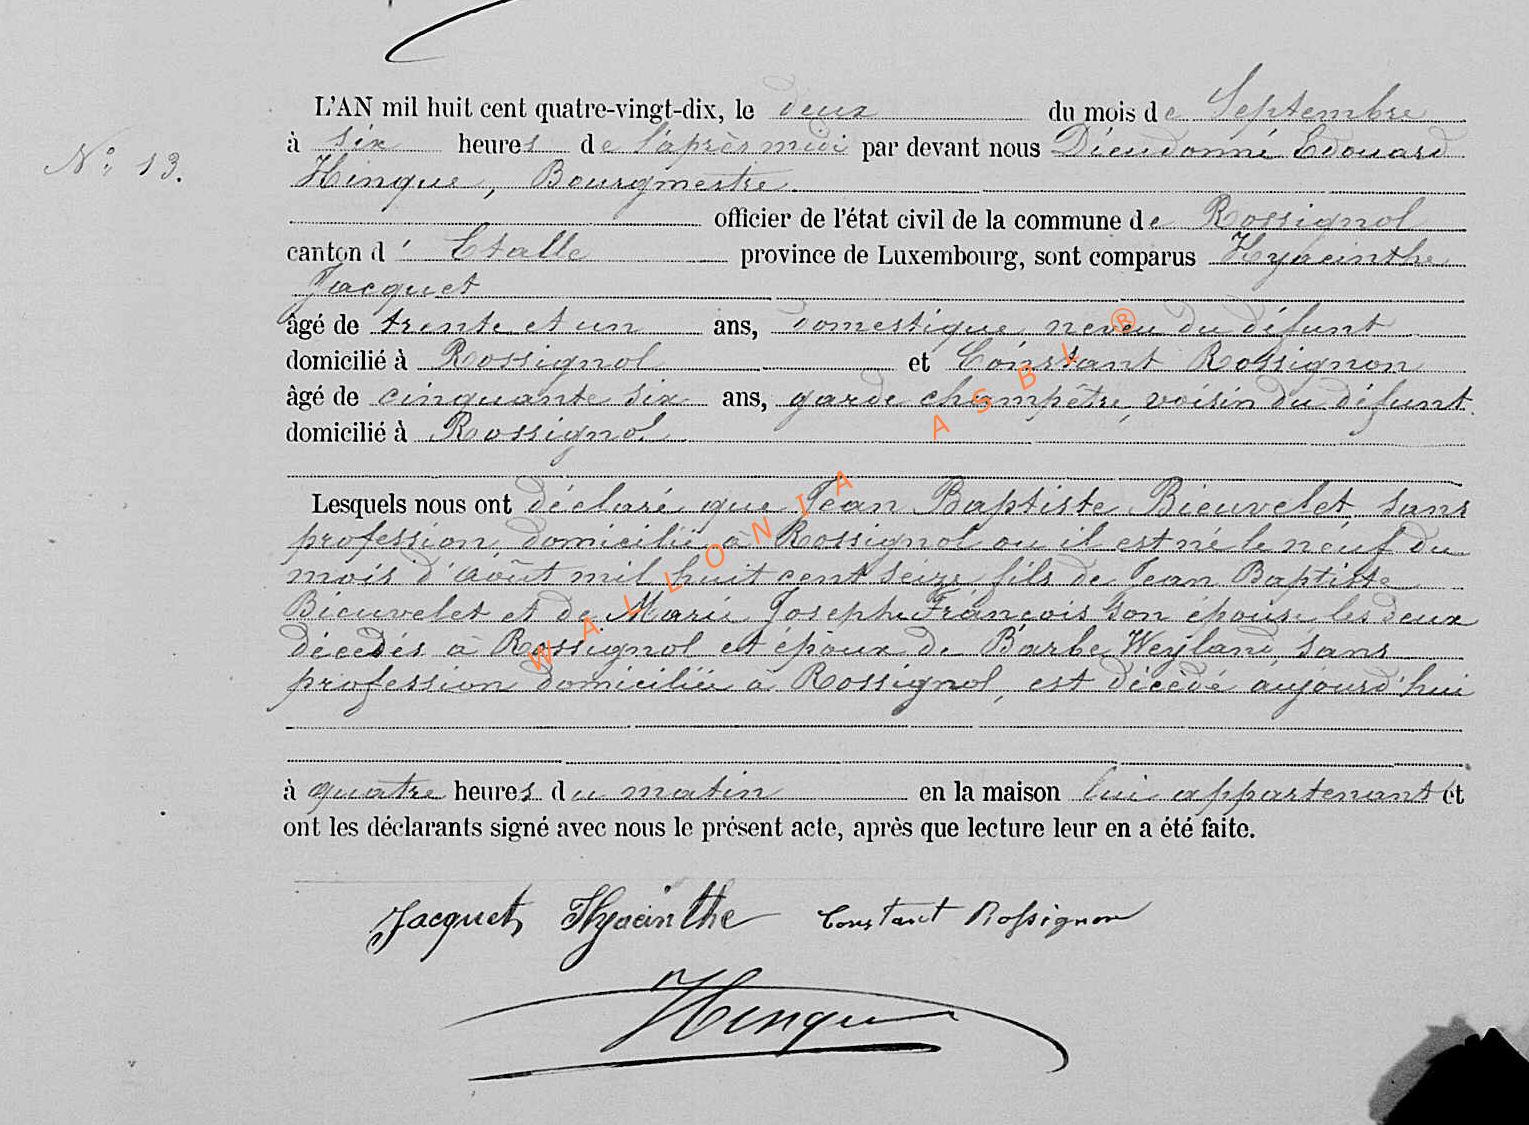 L'AN mil huit cent quatre-vingt-dix, le deux du mois de Septembre
à six heures de l'après midi par devant nous Dieudonné Edouard
N° 13.
Hinque, Bourgmestre
officier de l'état civil de la commune de Rossignol
canton d' Etalle province de Luxembourg, sont comparus Hyacinthe
Jacquet
âgé de trente et un ans, domestique neveu du défunt
domicilié à Rossignol et Constant Rossignon
âgé de cinquante six ans, garde champêtre, voisin du défunt
domicilié à Rossignol
Lesquels nous ont déclaré que Jean Baptiste Bieuvelet sans
profession, domicilié à Rossignol ou il est né le neuf du
mois d'août mil huit cent seize fils de Jean Baptiste
Bieuvelet et de Marie Josephe François son épouse les deux
décédés à Rossignol et époux de Barbe Weyland, sans
profession domiciliée à Rossignol, est décédé aujourd'hui
à quatre heures du matin en la maison lui appartenant et
ont les déclarants signé avec nous le présent acte, après que lecture leur en a été faite.
Jacquet Hyacinthe Constant Rossignon
Hinque
WALLONIA ASBL ®